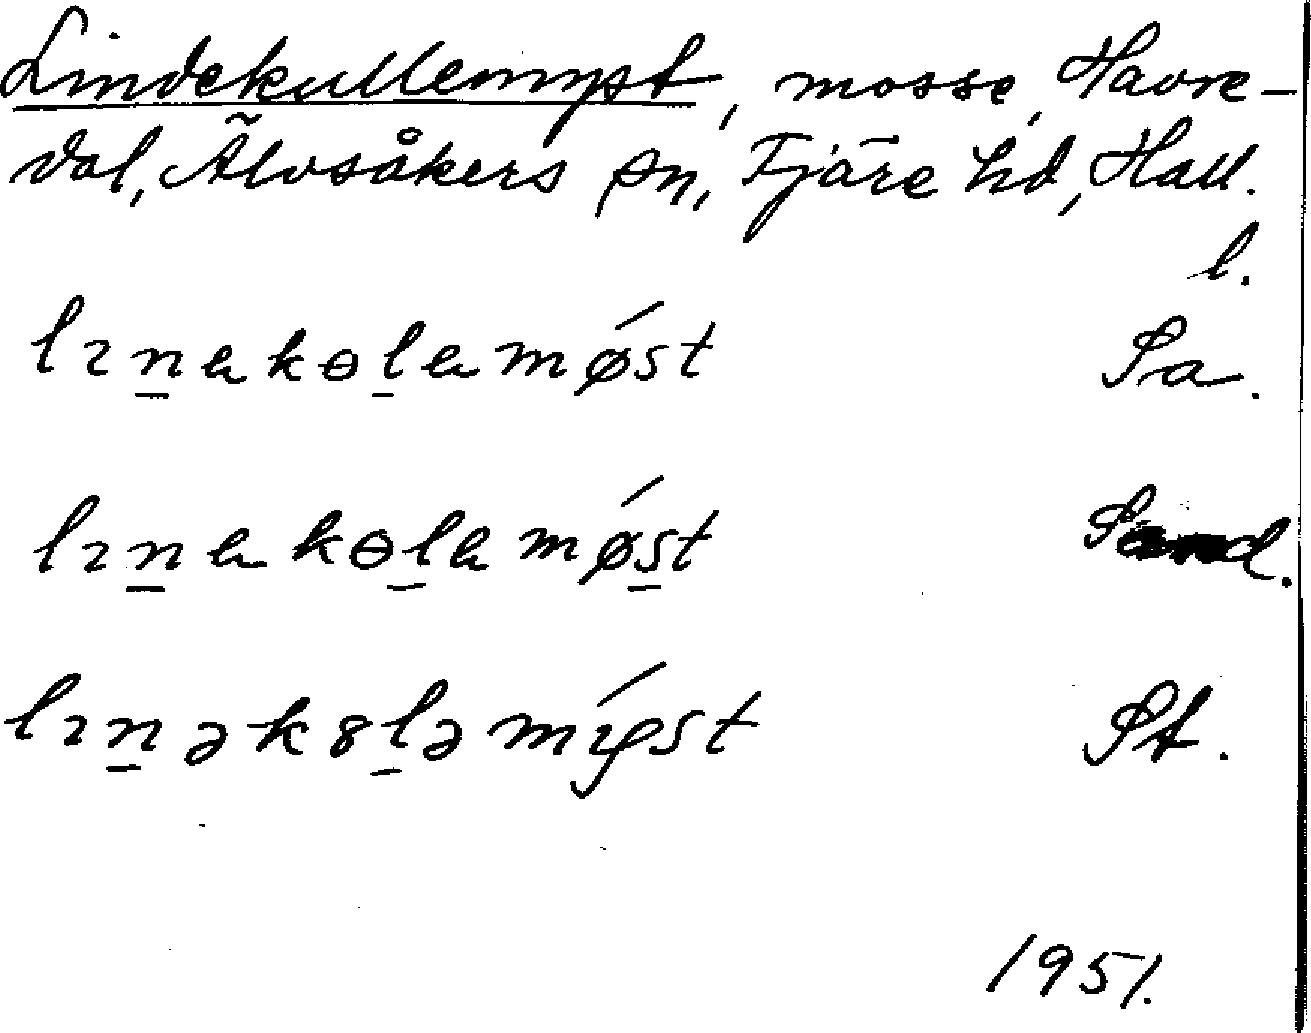 Lindekullemyst, mosse, Havre-
dal, Älvsåkers sn, Fjäre hd, Hall.
l.
lın̲ɐkɵl̲ɐmǿst Sa.
lın̲ɐkɵl̲ɐmǿs̲t
lın̲ək8l̲əmýst St.
1951.